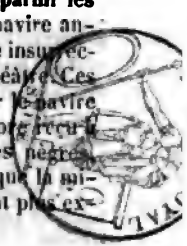 partir les
navire an-
e insurrec-
éâtre. Ces
r le navire
reçu
nègre
que la mi-
nt plus ex-